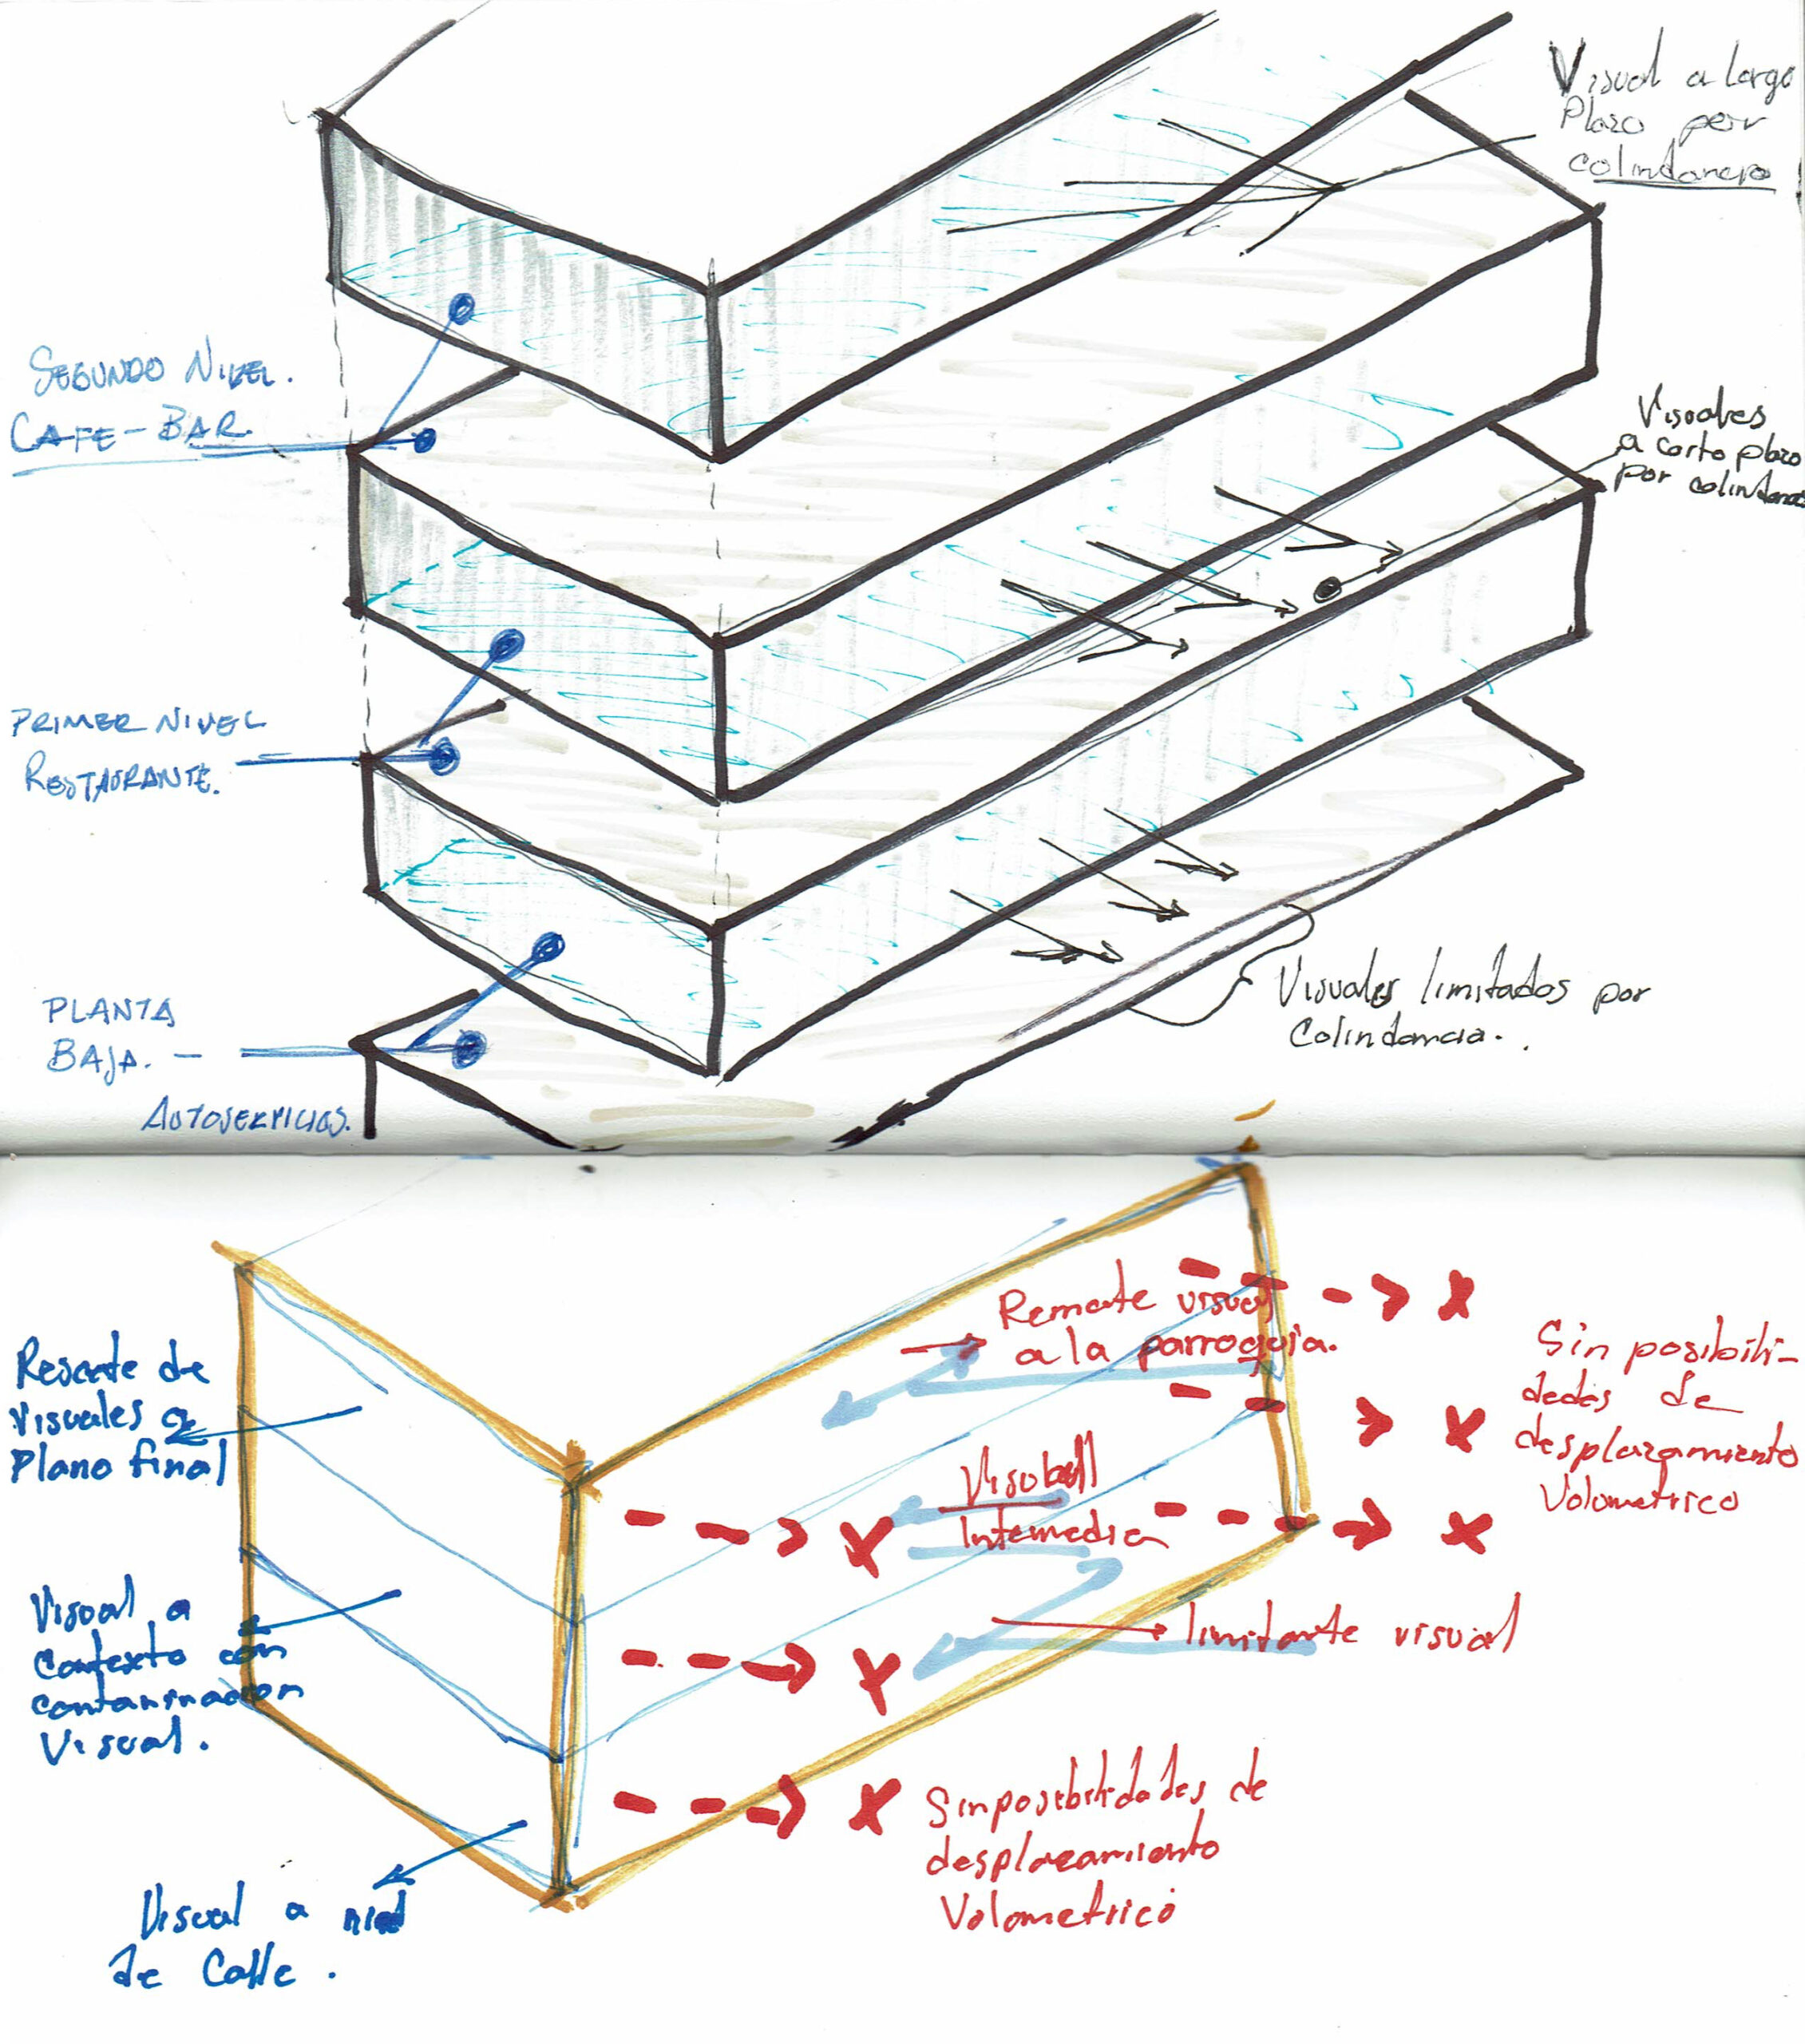 Visual a largo
Plazo por
colindancia
SEGUNDO NIVEL.
CAFE-BAR.
Visuales
a corto plazo
por colindancia
PRIMER NIVEL
RESTAURANTE.
PLANTA
BAJA. -
AUTOSERVICIOS.
Visuales limitados por
Colindancia.
Remate visual
a la parroquia.
Sin posibili-
dades de
desplazamiento
Volumetrico
Rescate de
Visuales a
Plano final
Visual
Intermedia
Visual a
Contexto con
contaminacion
Visual.
limitante visual
Sin posibilidades de
desplazamiento
Volumetrico
Visual a nivel
de Calle.